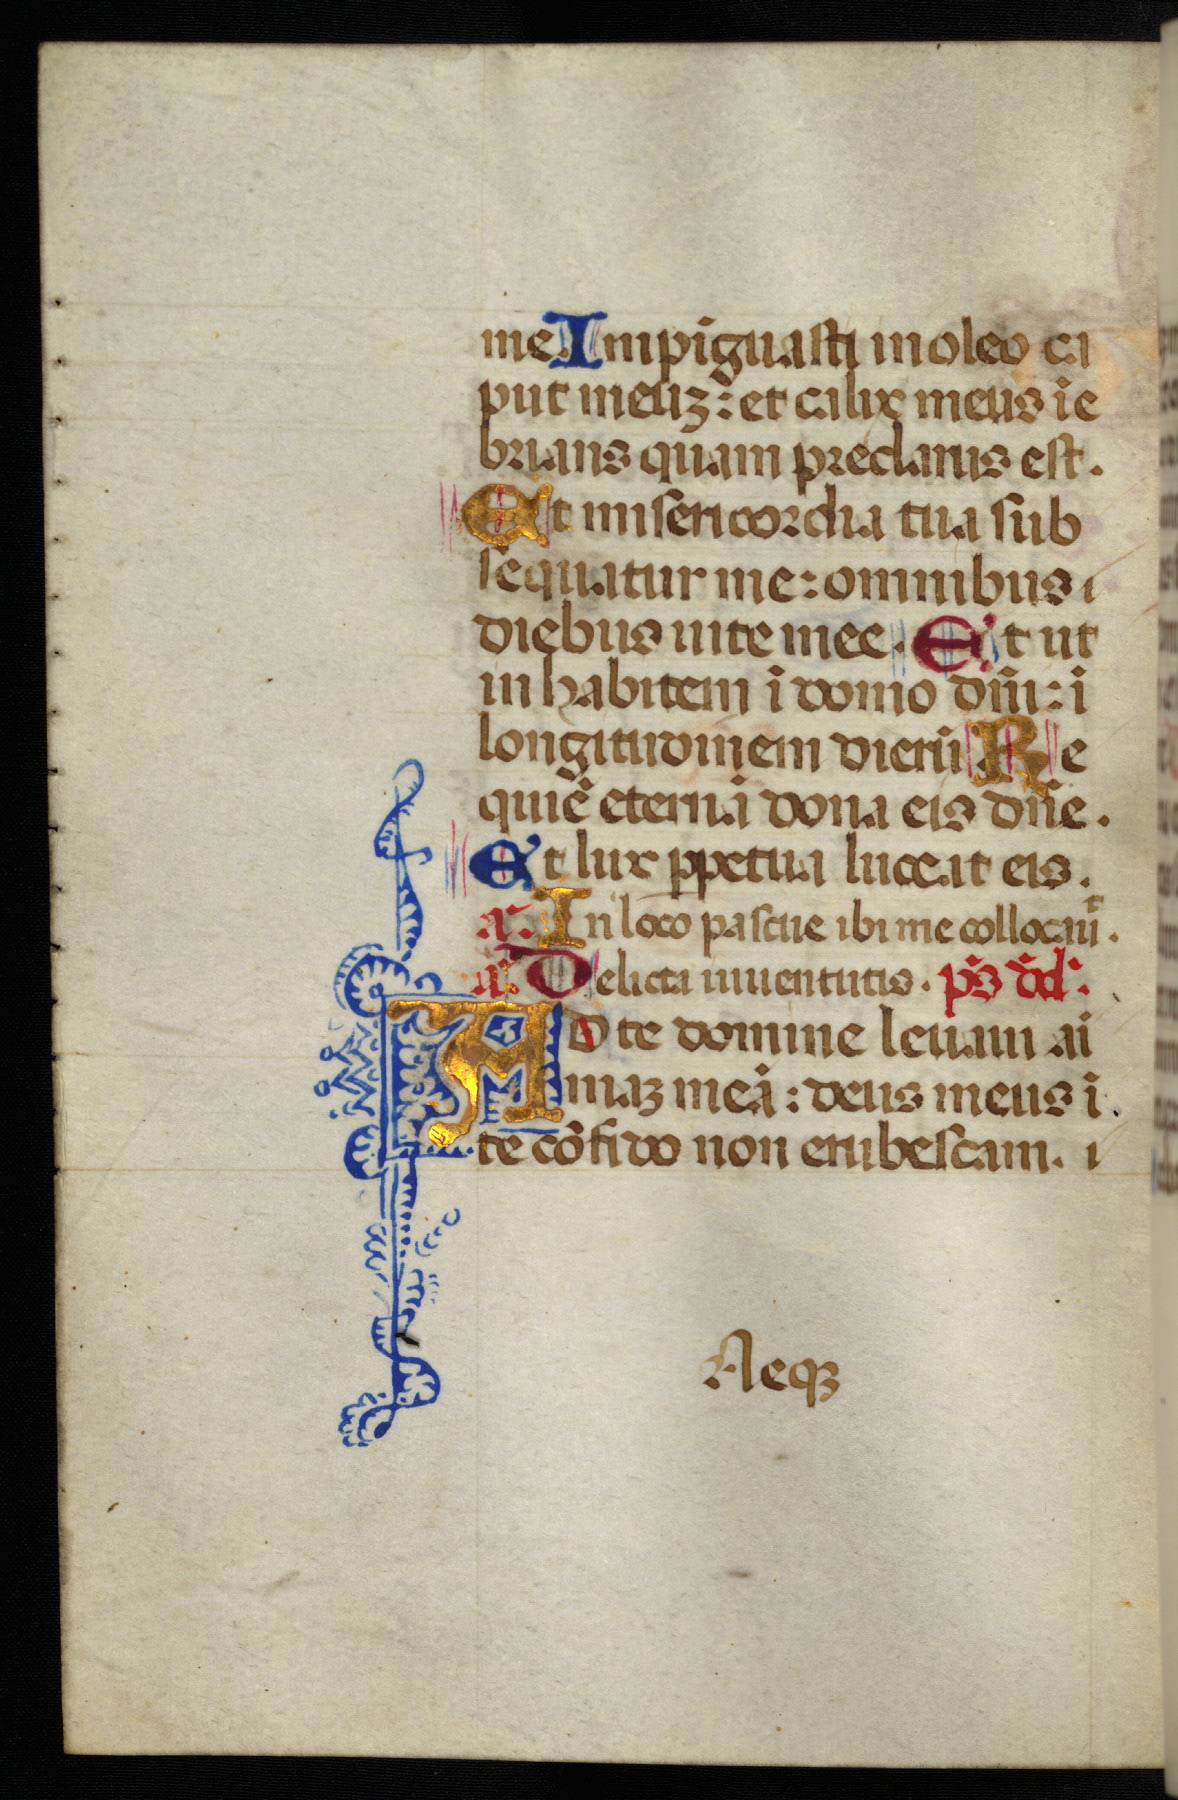 me. Impiguasti in oleo ca
put meuʒ: et calix meus īe
brians quam preclarus est.
Et misericordia tua sub
sequatur me: omnibus
diebus uite mee. Et ut
in habitem ī domo dn̄i: ī
longitudinem dierū Re
quiē eternā dona eis dn̄e.
Et lux ꝑpetua luceat eis.
a. In loco pascue ibi me collocauīt.
a. Delicta iuuentutis. p̄s dd̄.
AD te domine leuaui ai
maʒ meā: deus meus ī
te cōfido non erubescam.
Neqʒ